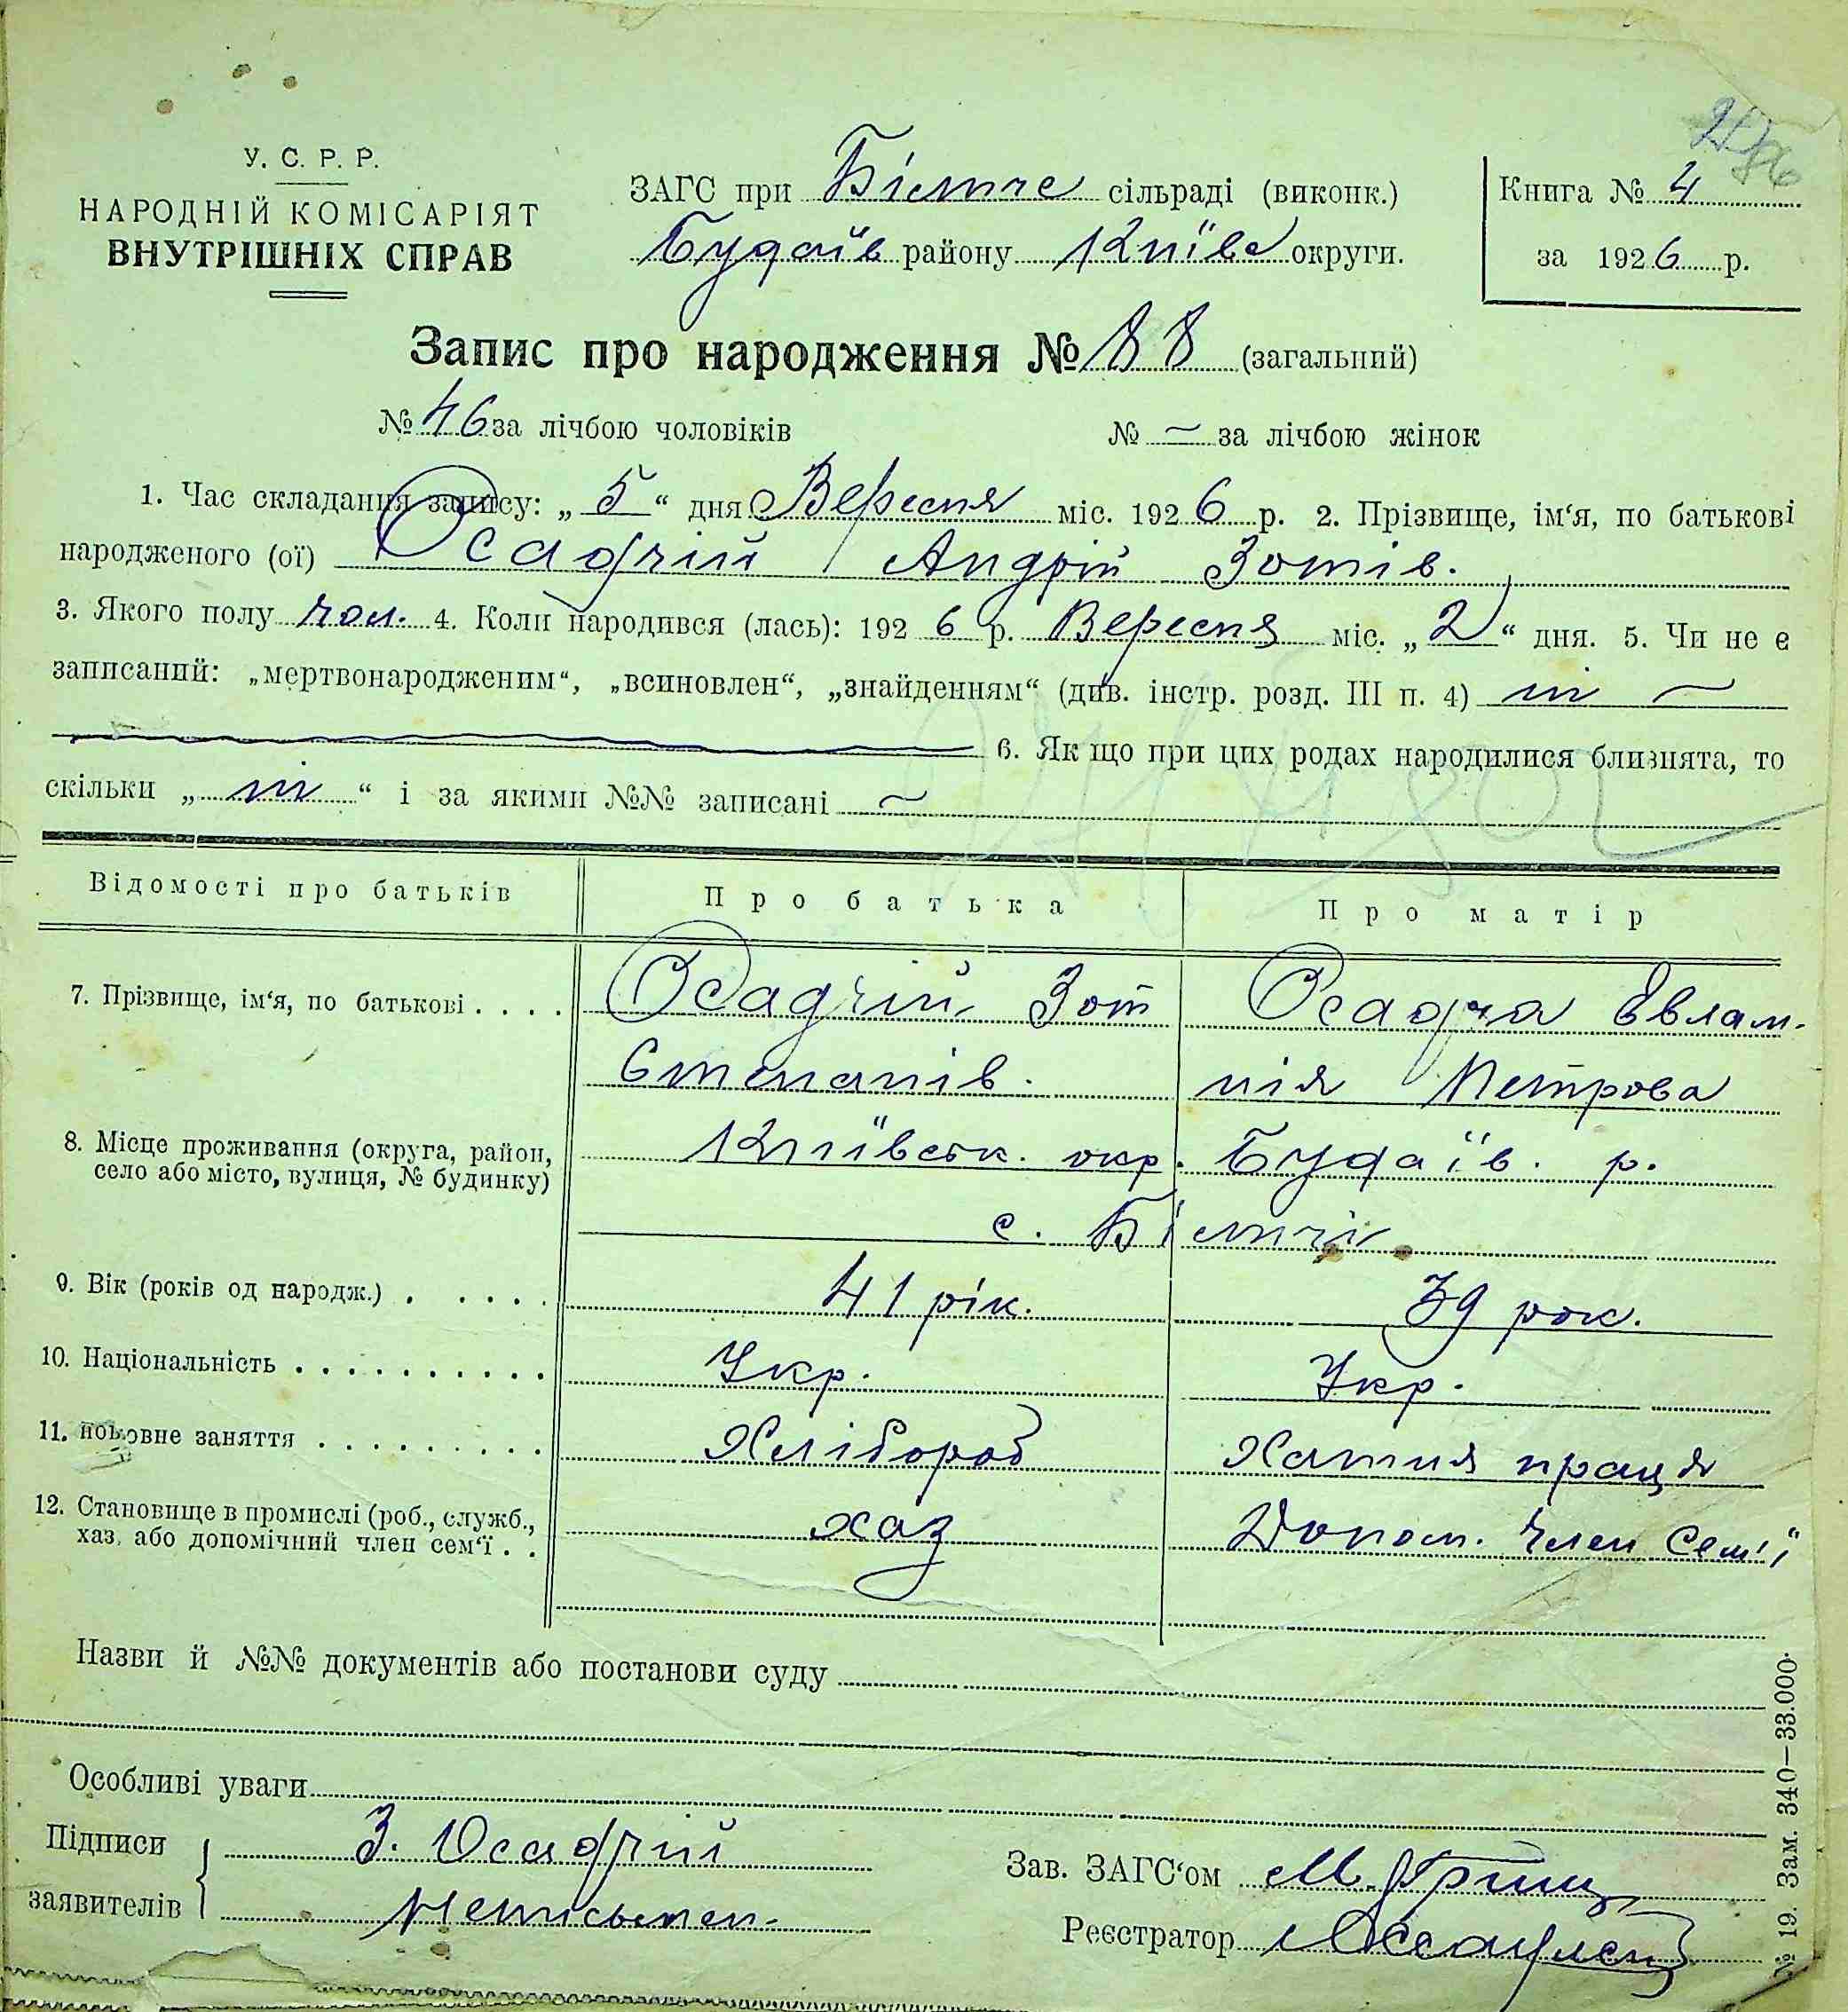 У. С. Р. Р.
НАРОДНІЙ КОМІСАРІЯТ
ВНУТРІШНІХ СПРАВ
ЗАГС при сільраді (виконк.)
Будаїв району Київс округи.
Книга № 4
за 1926 р.
Запис про народження № 88 (загальний)
№ 46 за лічбою чоловіків № — за лічбою жінок
1. Час складання запису: „ 5 “ дня Вересня міс. 1926 р. 2. Прізвище, ім‘я, по батькові
народженого (ої) Осадчій Андрій Зотів.
3. Якого полу чол. 4. Коли народився (лась): 1926 р. Вересня міс. „ 2 “ дня. 5. Чи не є
записаний: „мертвонародженим“, „всиновлен“, „знайденням“ (див. інстр. розд. III п. 4) ні —
6. Як що при цих родах народилися близнята, то
скільки „ ні “ і за якими №№ записані —
Відомості про батьків Про батька Про матір
7. Прізвище, ім‘я, по батькові . . . . Осадчій Зот Осадча Евлам-
Степанів. пія Петрова
8. Місце проживання (округа, район, Київськ. окр. Будаїв. р.
село або місто, вулиця, № будинку)
с.
9. Вік (років од народж.) . . . . . 41 рік. 39 рок.
10. Національність . . . . . . . . . . Укр. Укр.
11. новне заняття . . . . . . . . . Хлібороб Хатня праця
12. Становище в промислі (роб., служб., хаз Допом. член сем'ї
хаз. або допомічний член сем‘ї . .
Назви й №№ документів або постанови суду
Особливі уваги
Підписи З. Осадчій
заявителів неписьмен.
Зав. ЗАГС‘ом М. Гриц
Реєстратор
№ 19. Зам. 340—33.000.